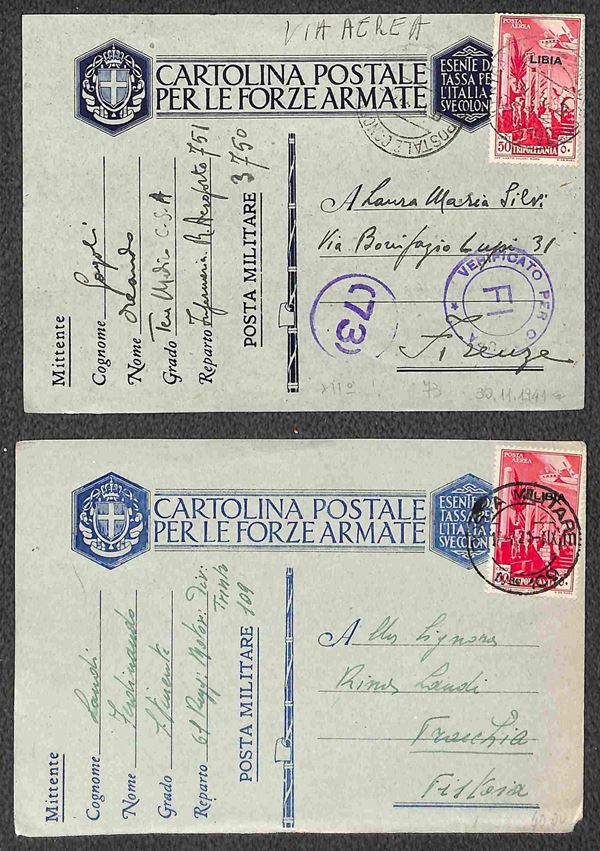 VIA AEREA
CARTOLINA POSTALE
PER LE FORZE ARMATE
ESENTE DA
TASSA PER
L'ITALIA
SUE COLON
POSTA
AEREA
LIBIA
50 TRIPOLITANIA
POSTALE
Mittente
Cognome
Nome
Grado Ten Medico C.S.A
Reparto Infermeria R. Aeroporto 751
POSTA MILITARE 3750
A Laura Maria Silvi
Via Bonifazio Lupi 31
Firenze
(73)
VERIFICATO PER
FI
73 30.11.1941
CARTOLINA POSTALE
PER LE FORZE ARMATE
ESENTE
TASSA PE
L'ITALIA
SUE COLON
POSTA
AEREA
LIBIA
MILITARE
Mittente
Cognome Landi
Nome Ferdinando
Grado S. Tenente
Reparto 61 Regg. Motor. Div.
Trento
POSTA MILITARE 109
Alla Signora
Rina Landi
Pistoia